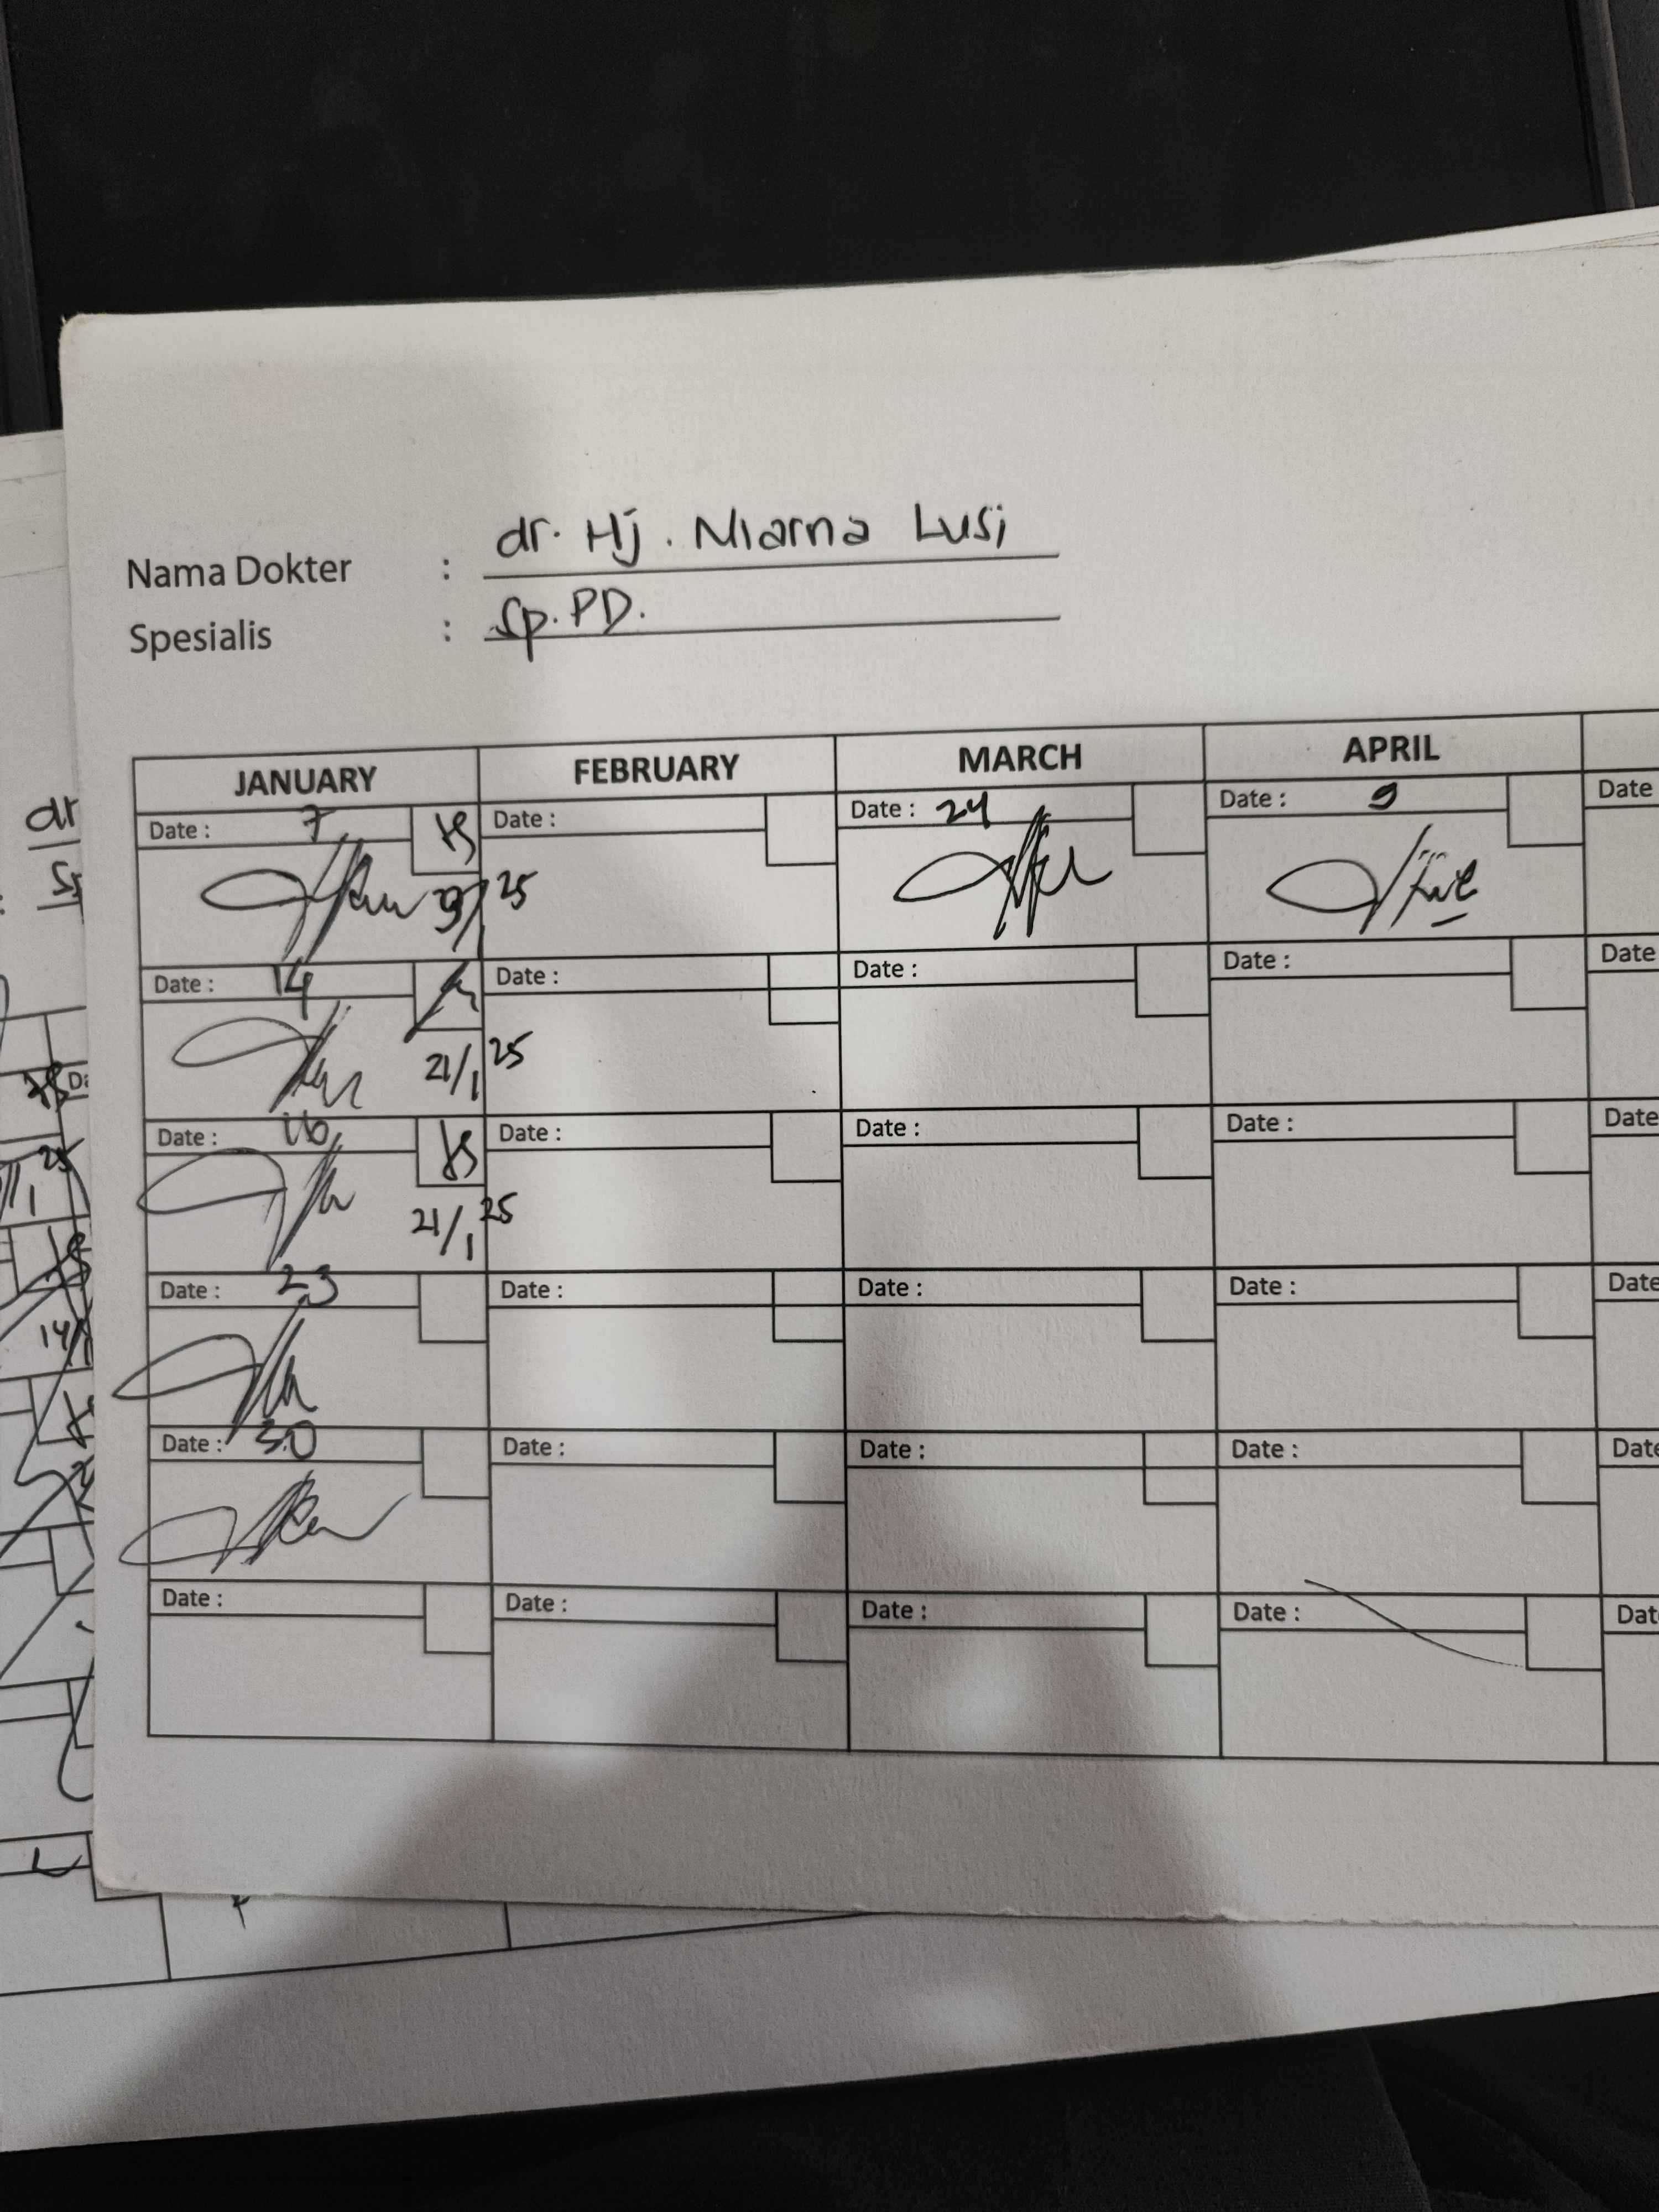 Nama Dokter : dr. Hj. Niarna Lusi
Spesialis : Sp. PD.
JANUARY FEBRUARY MARCH APRIL
Date : 7 Date : Date : 24 Date : 9 Date
9/1 25
Date : 14 Date : Date : Date : Date
21/1 25
Date : 16 Date : Date : Date : Date
21/1 25
Date : 23 Date : Date : Date : Date
Date : 30 Date : Date : Date : Date
Date : Date : Date : Date : Dat